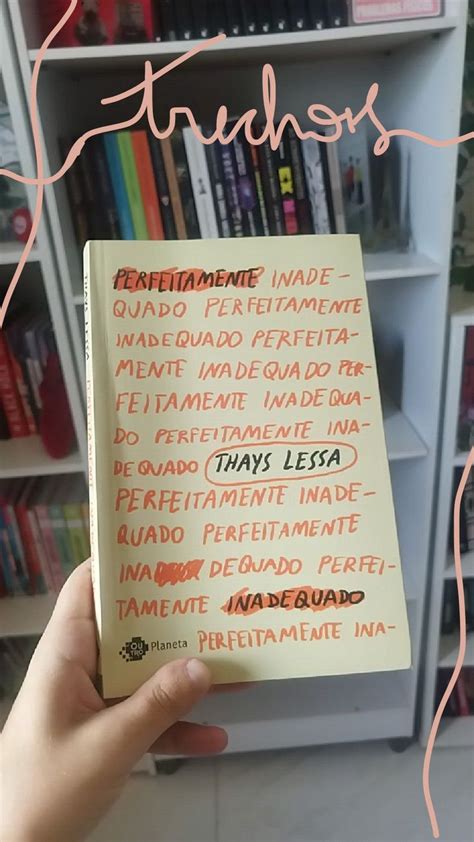 trechos
PERFEITAMENTE INADE-
QUADO PERFEITAMENTE
INADEQUADO PERFEITA-
MENTE INADEQUADO PER-
FEITAMENTE INADEQUA-
DO PERFEITAMENTE INA-
DEQUADO THAYS LESSA
PERFEITAMENTE INADE-
QUADO PERFEITAMENTE
INA DEQUADO PERFEI-
TAMENTE INADEQUADO
PERFEITAMENTE INA-
OUTRO Planeta
THAYS LESSA